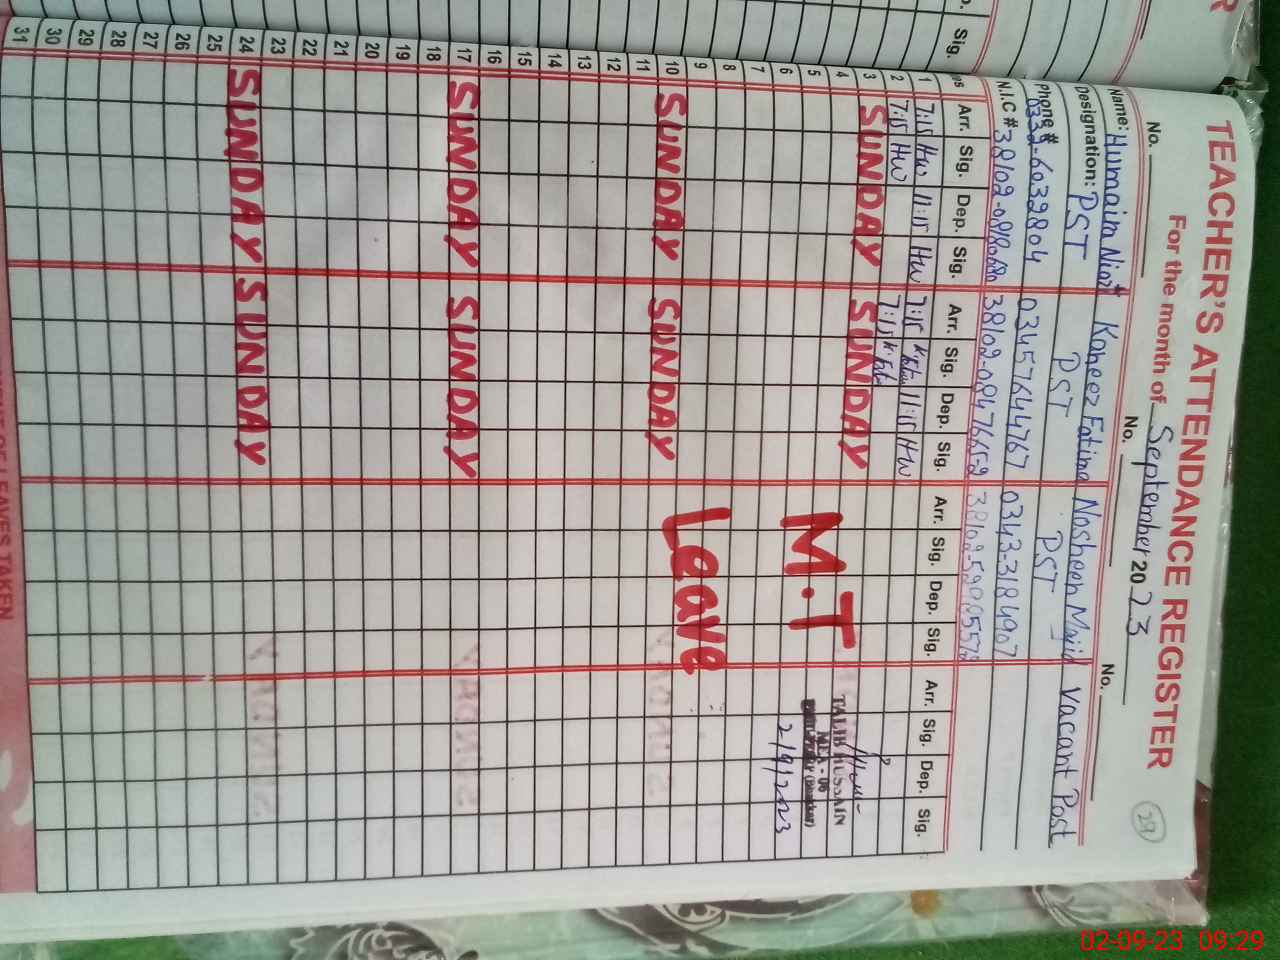 TEACHER'S ATTENDANCE REGISTER
For the month of September 2023
29
No. No. No.
Name: Humaira Niazi Kaneez Fatima Nosheen Majid Vacant Post
Designation: PST PST PST
Phone # 0332-6032804 03457644767 0343-3184907
N.I.C # 38102-0818068 38102-08476652
Arr. Sig. Dep. Sig. Arr. Sig. Dep. Sig. Arr. Sig. Dep. Sig. Arr. Sig. Dep. Sig.
1 7:15 HW 11:15 HW 7:15 K.Fatima 11:15 HW
2 7:15 HW 7:15 K.Fatima
3 SUNDAY SUNDAY
4
5
6
7
8
9
10 SUNDAY SUNDAY
11
12
13
14
15
16
17 SUNDAY SUNDAY
18
19
20
21
22
23
24 SUNDAY SUNDAY
25
26
27
28
29
30
31
M.T
Leave
TALIB HUSSAIN
MEA - 06
2/9/2023
OF LEAVES TAKEN
Sig.
02-09-23 09:29